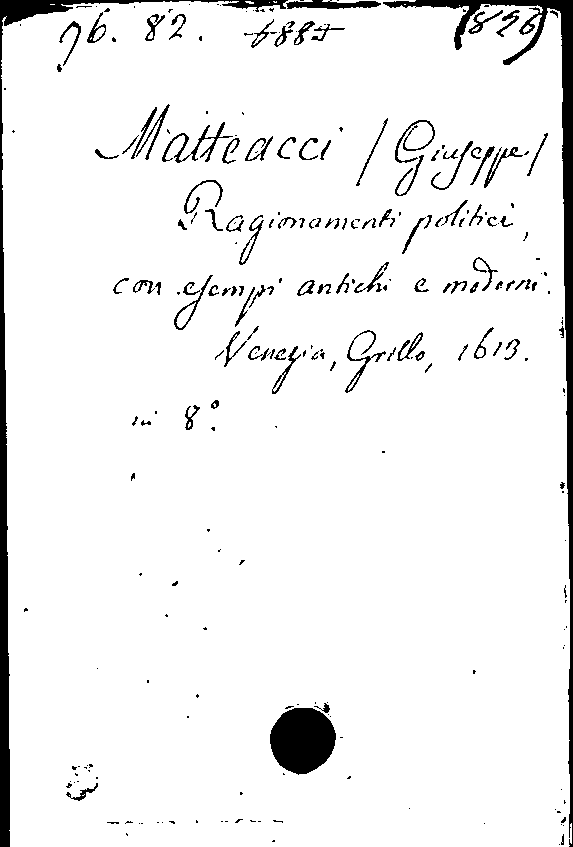 96. 82. 6884 (826)
Matteacci / Giuseppe /
Ragionamenti politici,
con esempi antichi e moderni.
Venezia, Grillo, 1613.
in 8º.